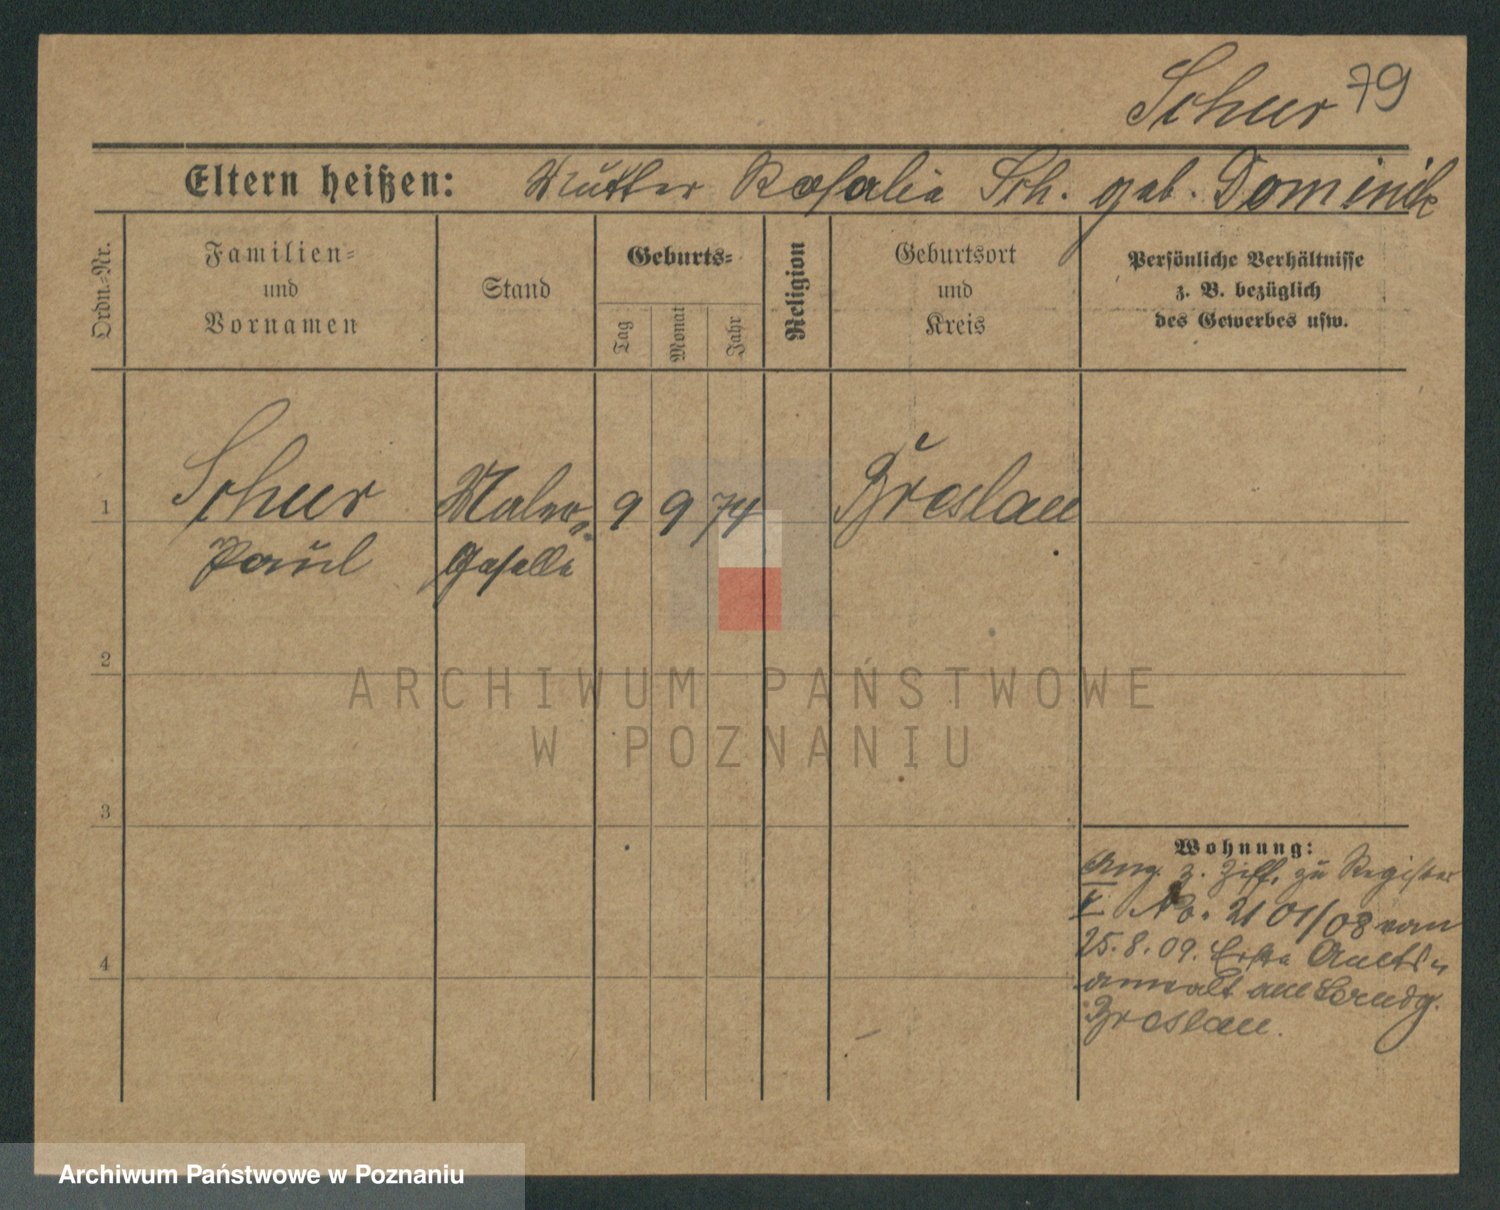 Schur 79
Eltern heißen: Mutter Rosalie Sch. geb. Dominik
Ordn.-Nr.
Familien-
und
Vornamen
Stand
Geburts-
Tag
Monat
Jahr
Religion
Geburtsort
und
Kreis
Persönliche Verhältnisse
z. B. bezüglich
des Gewerbes usw.
1 Schur Maler- 9 9 74 Breslau
Paul Geselle
2
3
4
Wohnung:
Ang. z. Ziff. zu Register
V. No. 2101/08 vom
25.8.09. Erste Amts-
anwalt am Landg.
Breslau.
ARCHIWUM PAŃSTWOWE
W POZNANIU
Archiwum Państwowe w Poznaniu